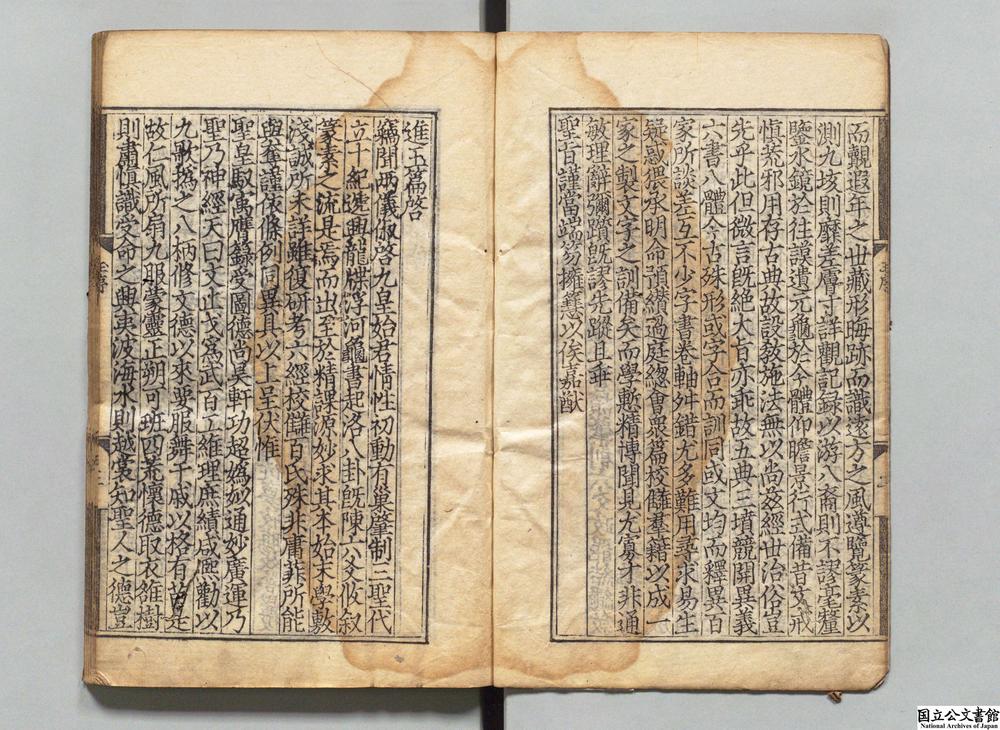 而觀遐年之世藏形晦跡而識遠方之風遵覽篆素以
測九垓則靡差膚寸詳觀記録以游八裔則不謬毫釐
鑒水鏡於往謨遺元龜於今體仰瞻景行式備昔文戒
愼荒邪用存古典故設教施法無以尚玆經世治俗豈
先乎此但微言旣絶大旨亦乖故五典三墳競開異義
六書八體今古殊形或字合而訓同或文均而釋異百
家所談差互不少字書卷軸舛錯尤多難用尋求易生
疑惑猥承明命預纘過庭緫會衆篇校讎羣籍以成一
家之製文字之訓備矣而學慙精博聞見尤寡才非通
敏理辭彌躓旣謬先蹤且乖
聖旨謹當端笏擁篲以俟嘉猷
進玉篇啓
竊聞兩儀俶啓九皇始君情性初動有巢肇制二聖代
立十紀遞興龍牒浮河龜書起洛八卦旣陳六爻攸叙
篆素之流是焉而出至於精課源妙求其本始末學敷
淺誠所未詳雖復研考六經校讎百氏殊非庸菲所能
與奪謹依條例同異具以上呈伏惟
聖皇馭寓膺籙受圖德尚昊軒功超嬀姒通妙廣運乃
聖乃神經天曰文止戈爲武百工維理庶績咸熙勸以
九歌撝之八柄修文德以來要服舞干戚以格有苗是
故仁風所扇九服蒙靈正朔可班四荒懷德取衣維樹
則肅愼識受命之興重波海水則越裳知聖人之德豈
国立公文書館
National Archives of Japan